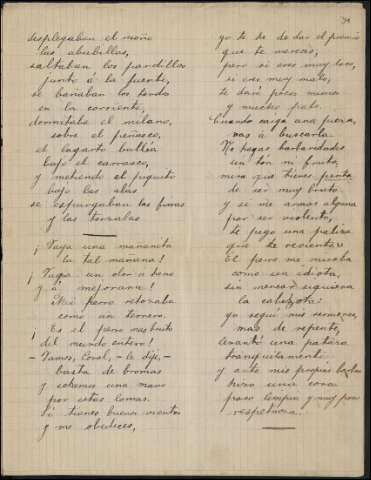 desplegaban el moño
las abubillas,
saltaban los pardillos
junto á la fuente,
se bañaban los tordos
en la corriente,
dormitaba el milano,
sobre el peñasco,
el lagarto bullía
bajo el carrasco,
y metiendo el piquito
bajo las alas
se espurgaban las
y las torzalas
¡Vaya una mañanita
la tal mañana!
¡Vaya un olor a heno
y á mejorana!
Mi perro retozaba
como un ternero.
¡Es el perro mas bruto
del mundo entero!
- Vamos, Coral, - le dije, -
basta de bromas
y echemos una mano
por estas lomas.
Si tienes buenos vientos
y me obedeces,
yo te he de dar el premio
que te mereces,
pero si eres muy loco,
si eres muy malo,
te daré poca
y mucho palo.
Cuando caiga una pieza,
vas á buscarla
No hagas barbaridades
sin ton ni fruto,
mira que tienes
de ser muy bruto
y si me armas alguna
por ser violento,
te pego una paliza
que te reviento.
El perro me miraba
como un idiota,
sin mover siquiera
la cabezota:
yo seguí mis
mas de repente,
levantó una patita
tranquilamente
y ante mis propias barbas
hizo una cosa
poco limpia y muy poco
respetuosa.